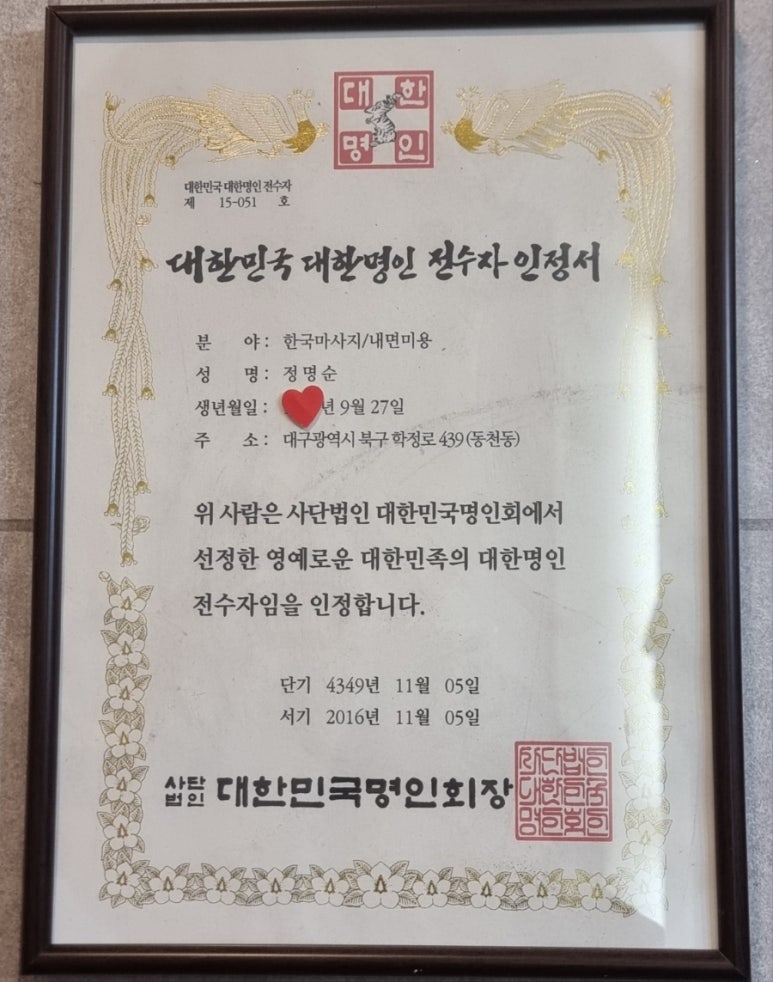 대한
명인
대한민국 대한명인 전수자
제 15-051 호
대한민국 대한명인 전수자 인정서
분 야 : 한국마사지/내면미용
성 명 : 정명순
생년월일 : 년 9월 27일
주 소 : 대구광역시 북구 학정로 439 (동천동)
위 사람은 사단법인 대한민국명인회에서
선정한 영예로운 대한민족의 대한명인
전수자임을 인정합니다.
단기 4349년 11월 05일
서기 2016년 11월 05일
사단법인 대한민국명인회장